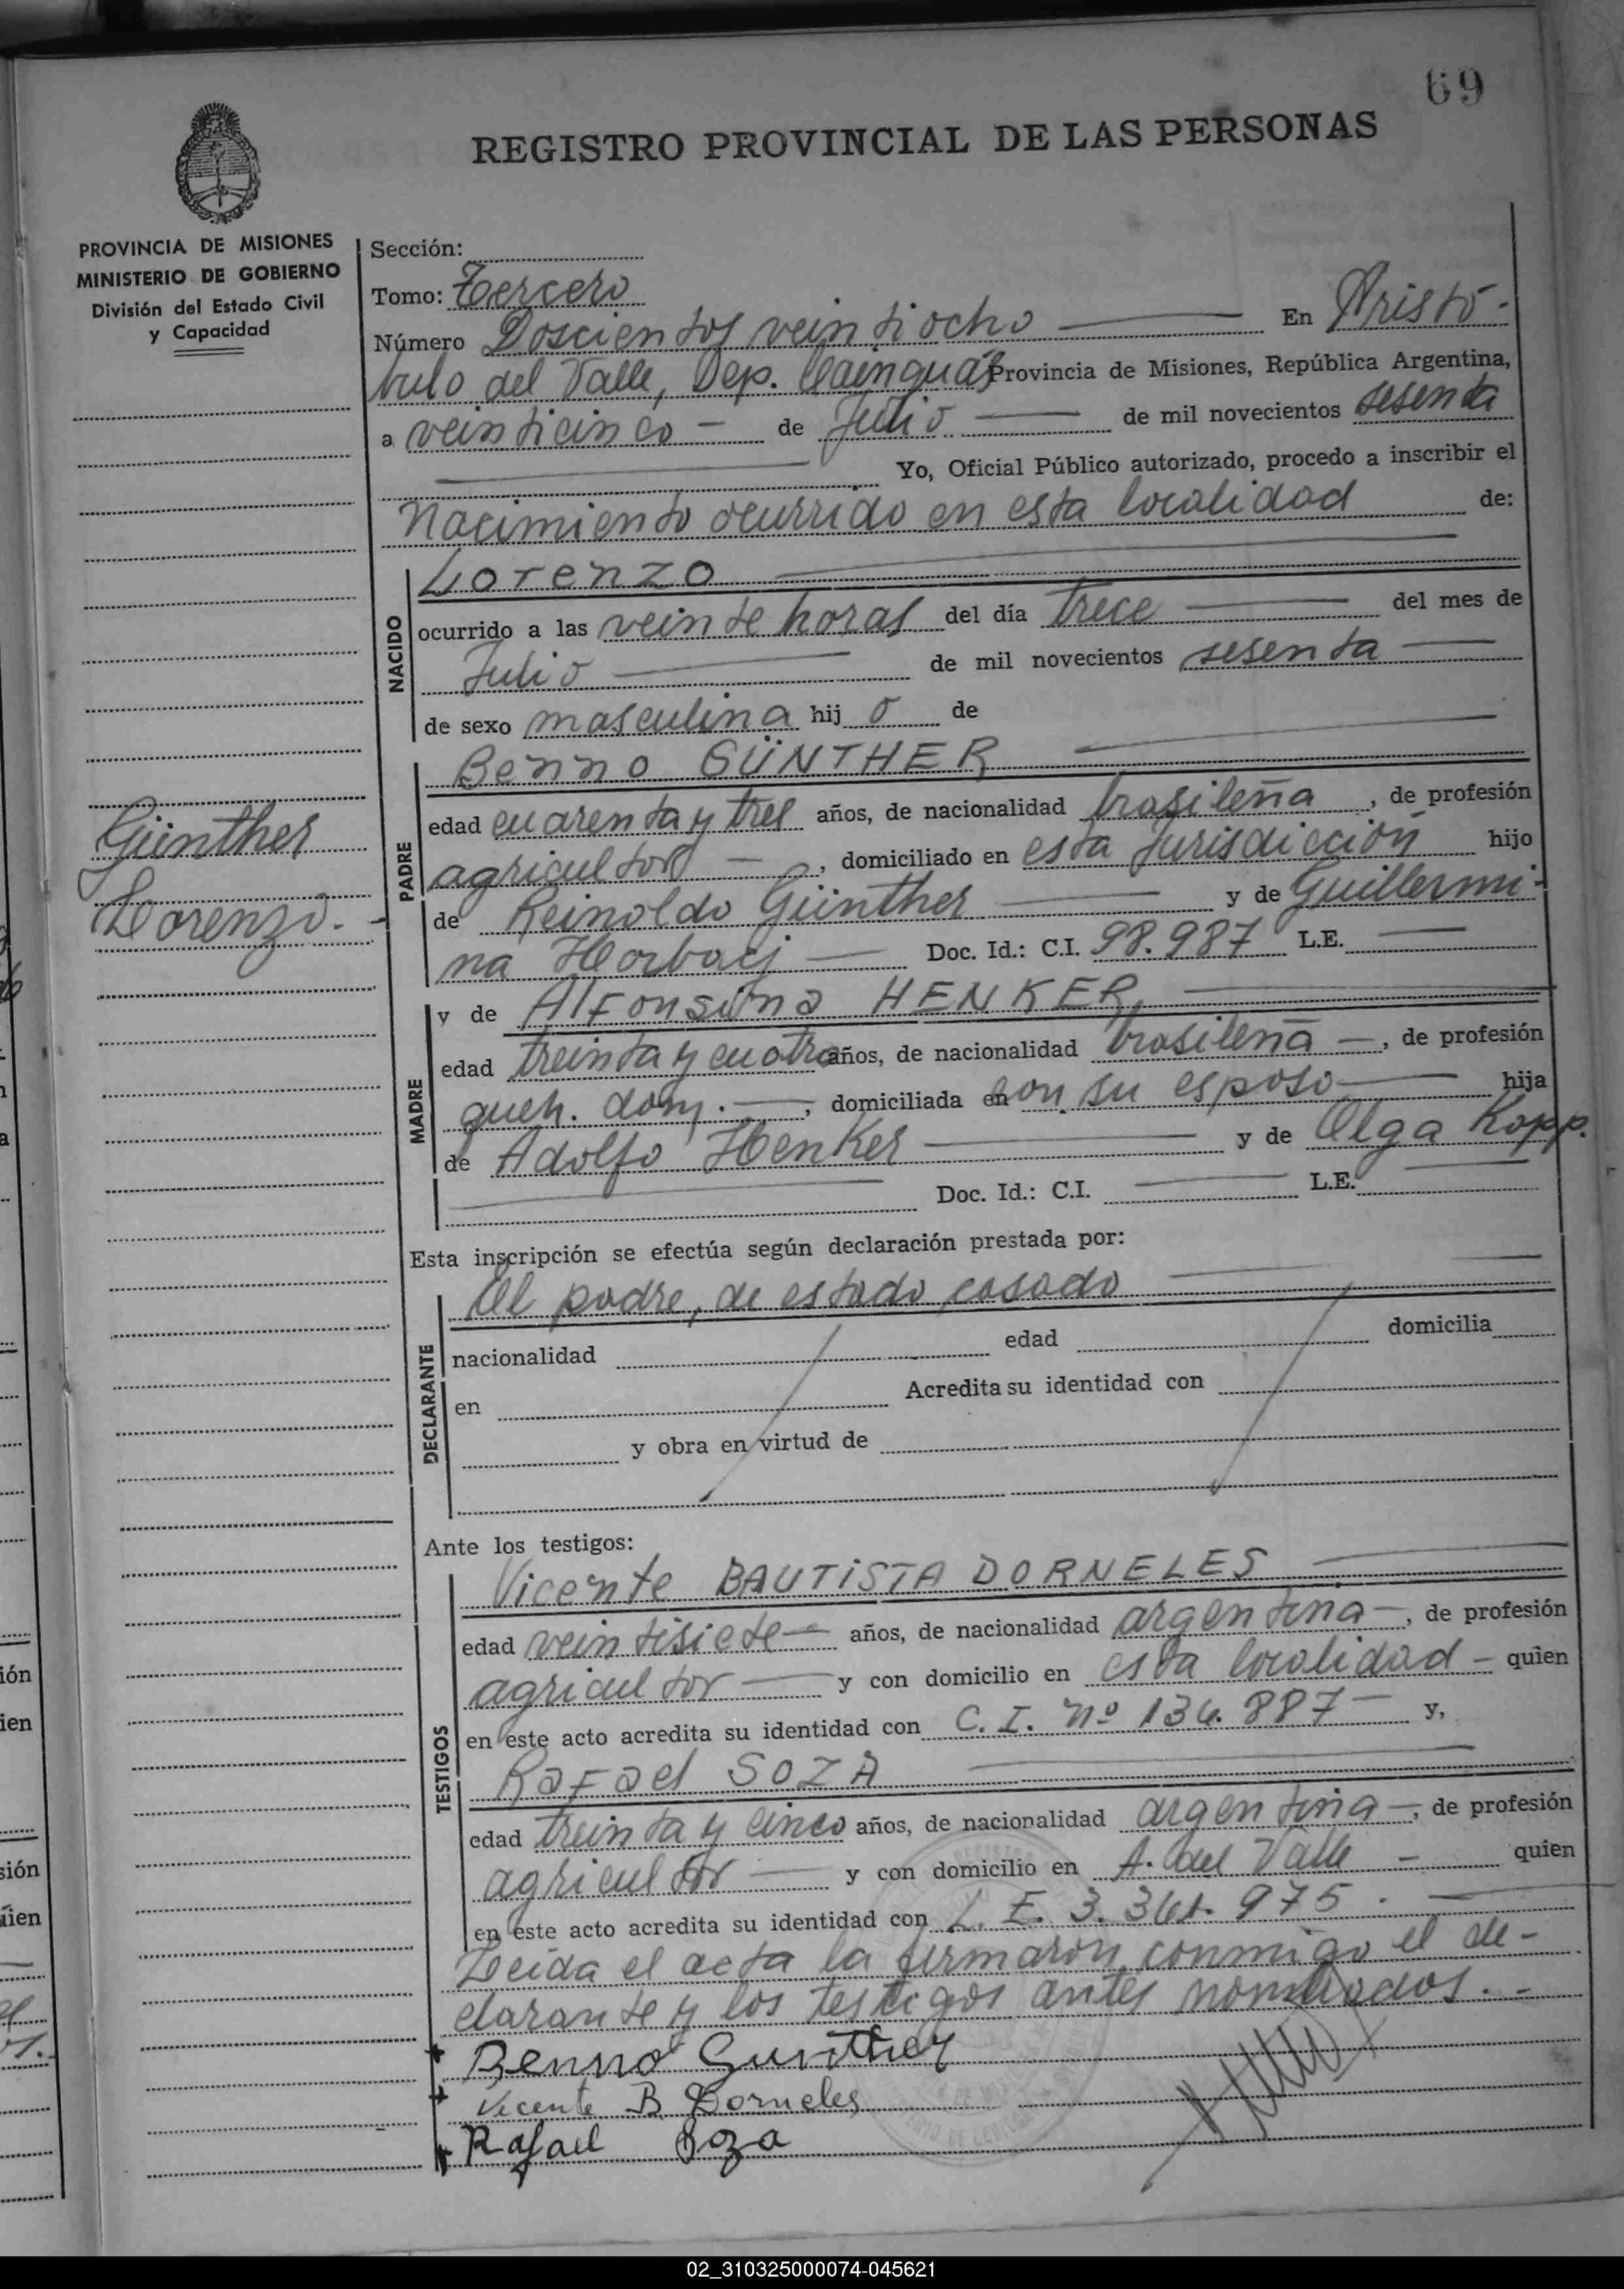 69
REGISTRO PROVINCIAL DE LAS PERSONAS
PROVINCIA DE MISIONES
MINISTERIO DE GOBIERNO
División del Estado Civil
y Capacidad
Günther
Lorenzo. -
Sección:
Tomo: Tercero
Número Doscientos veintiocho En Aristó-
bulo del Valle, Dep. Cainguás Provincia de Misiones, República Argentina,
a veinticinco - de Julio de mil novecientos sesenta
Yo, Oficial Público autorizado, procedo a inscribir el
Nacimiento ocurrido en esta localidad de:
NACIDO
Lorenzo
ocurrido a las veinte horas del día trece del mes de
Julio de mil novecientos sesenta
de sexo masculina hij o de
PADRE
Benno GÜNTHER
edad cuarenta y tres años, de nacionalidad brasileña, de profesión
agricultor -, domiciliado en esta Jurisdicción hijo
de Reinoldo Günther y de Guillermi-
na Horbacj Doc. Id.: C.I. 98.987 L.E.
MADRE
y de Alfonsina HENKER
edad treinta y cuatro años, de nacionalidad brasileña -, de profesión
queh. dom. -, domiciliada en con su esposo hija
de Adolfo Henker y de Olga Kopp.
Doc. Id.: C.I. L.E.
Esta inscripción se efectúa según declaración prestada por:
DECLARANTE
El padre, de estado casado
nacionalidad edad domicilia
en Acredita su identidad con
y obra en virtud de
Ante los testigos:
TESTIGOS
Vicente BAUTISTA DORNELES
edad veintisiete años, de nacionalidad argentina -, de profesión
agricultor y con domicilio en esta localidad - quien
en este acto acredita su identidad con C. I. nº 134.887 - y,
Rafael SOZA
edad treinta y cinco años, de nacionalidad argentina -, de profesión
agricultor y con domicilio en A. del Valle - quien
en este acto acredita su identidad con L. E. 3.361.975. -
Leída el acta la firmaron conmigo el de-
clarante y los testigos antes nombrados. -
Benno Gunther
Vicente B Dorneles
Rafael Soza
02_310325000074-045621